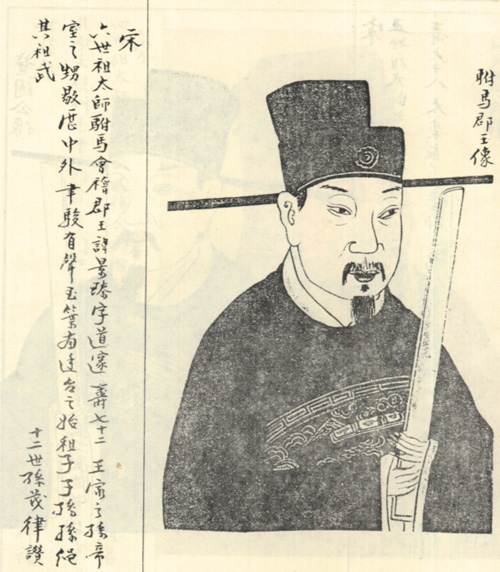 駙馬郡王像
宋
六世祖太師駙馬會稽郡王諱景臻字道邃壽七十二 王家之孫帝
室之甥敭歷中外聿駿有聲玉葉有台之始祖子子孫孫繩
其祖武
十二世孫茂律讚